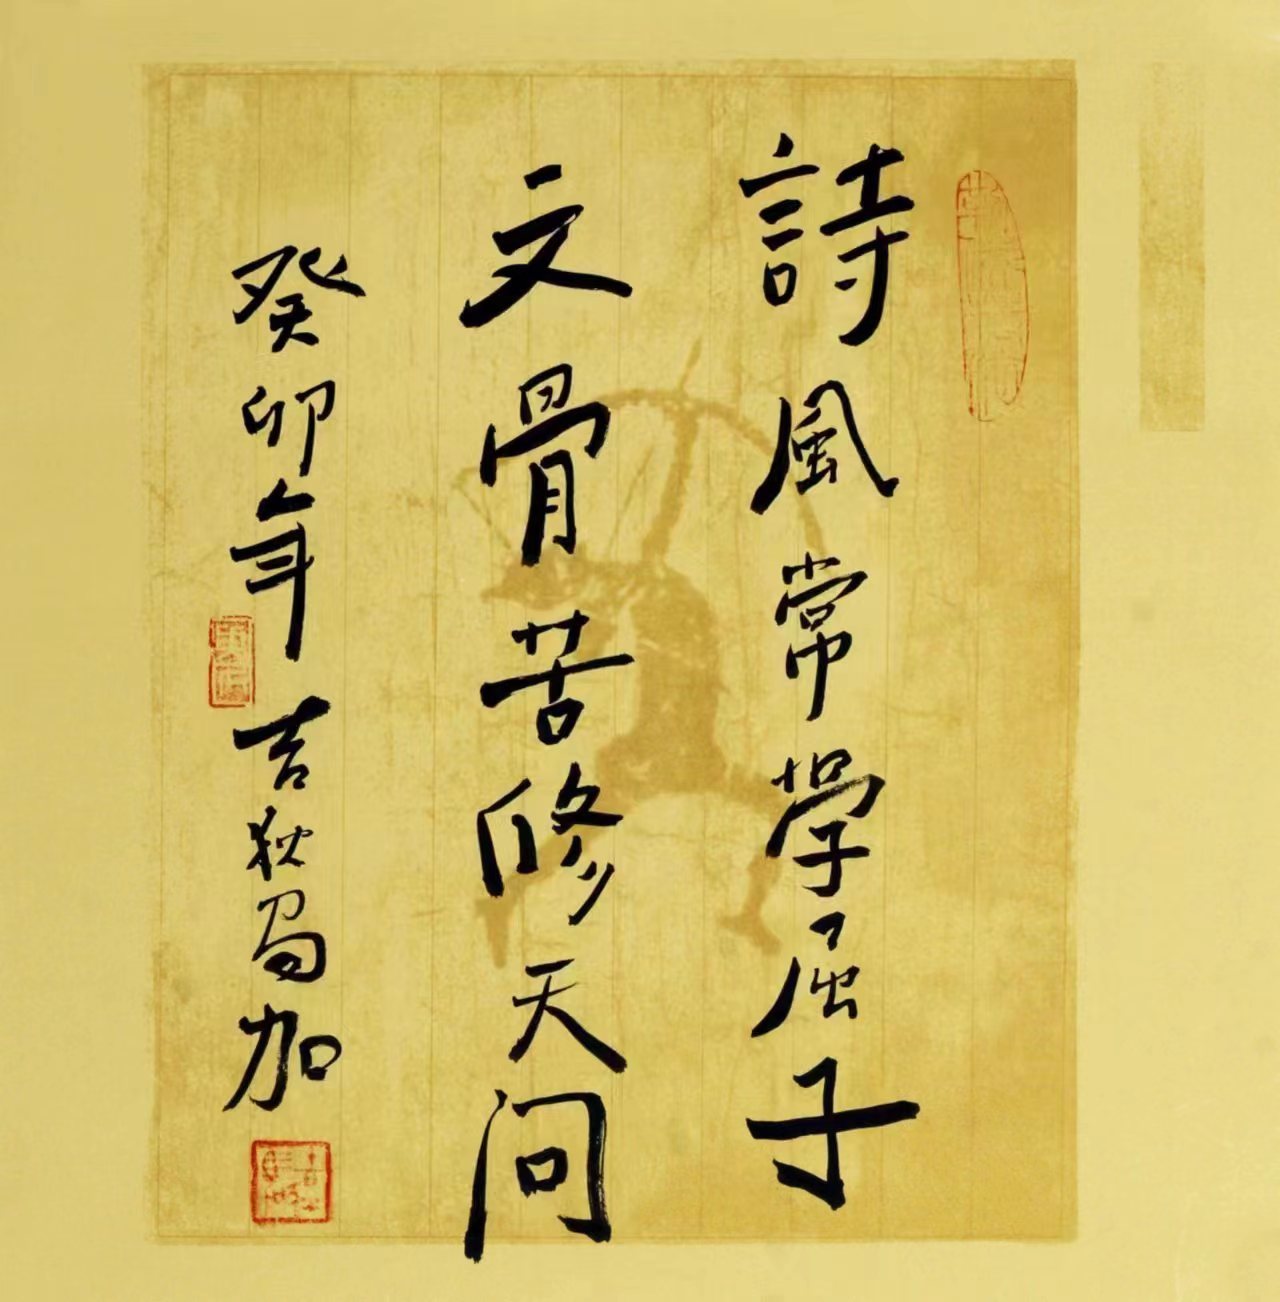 詩風常學屈子
文骨苦修天问
癸卯年 吉狄馬加